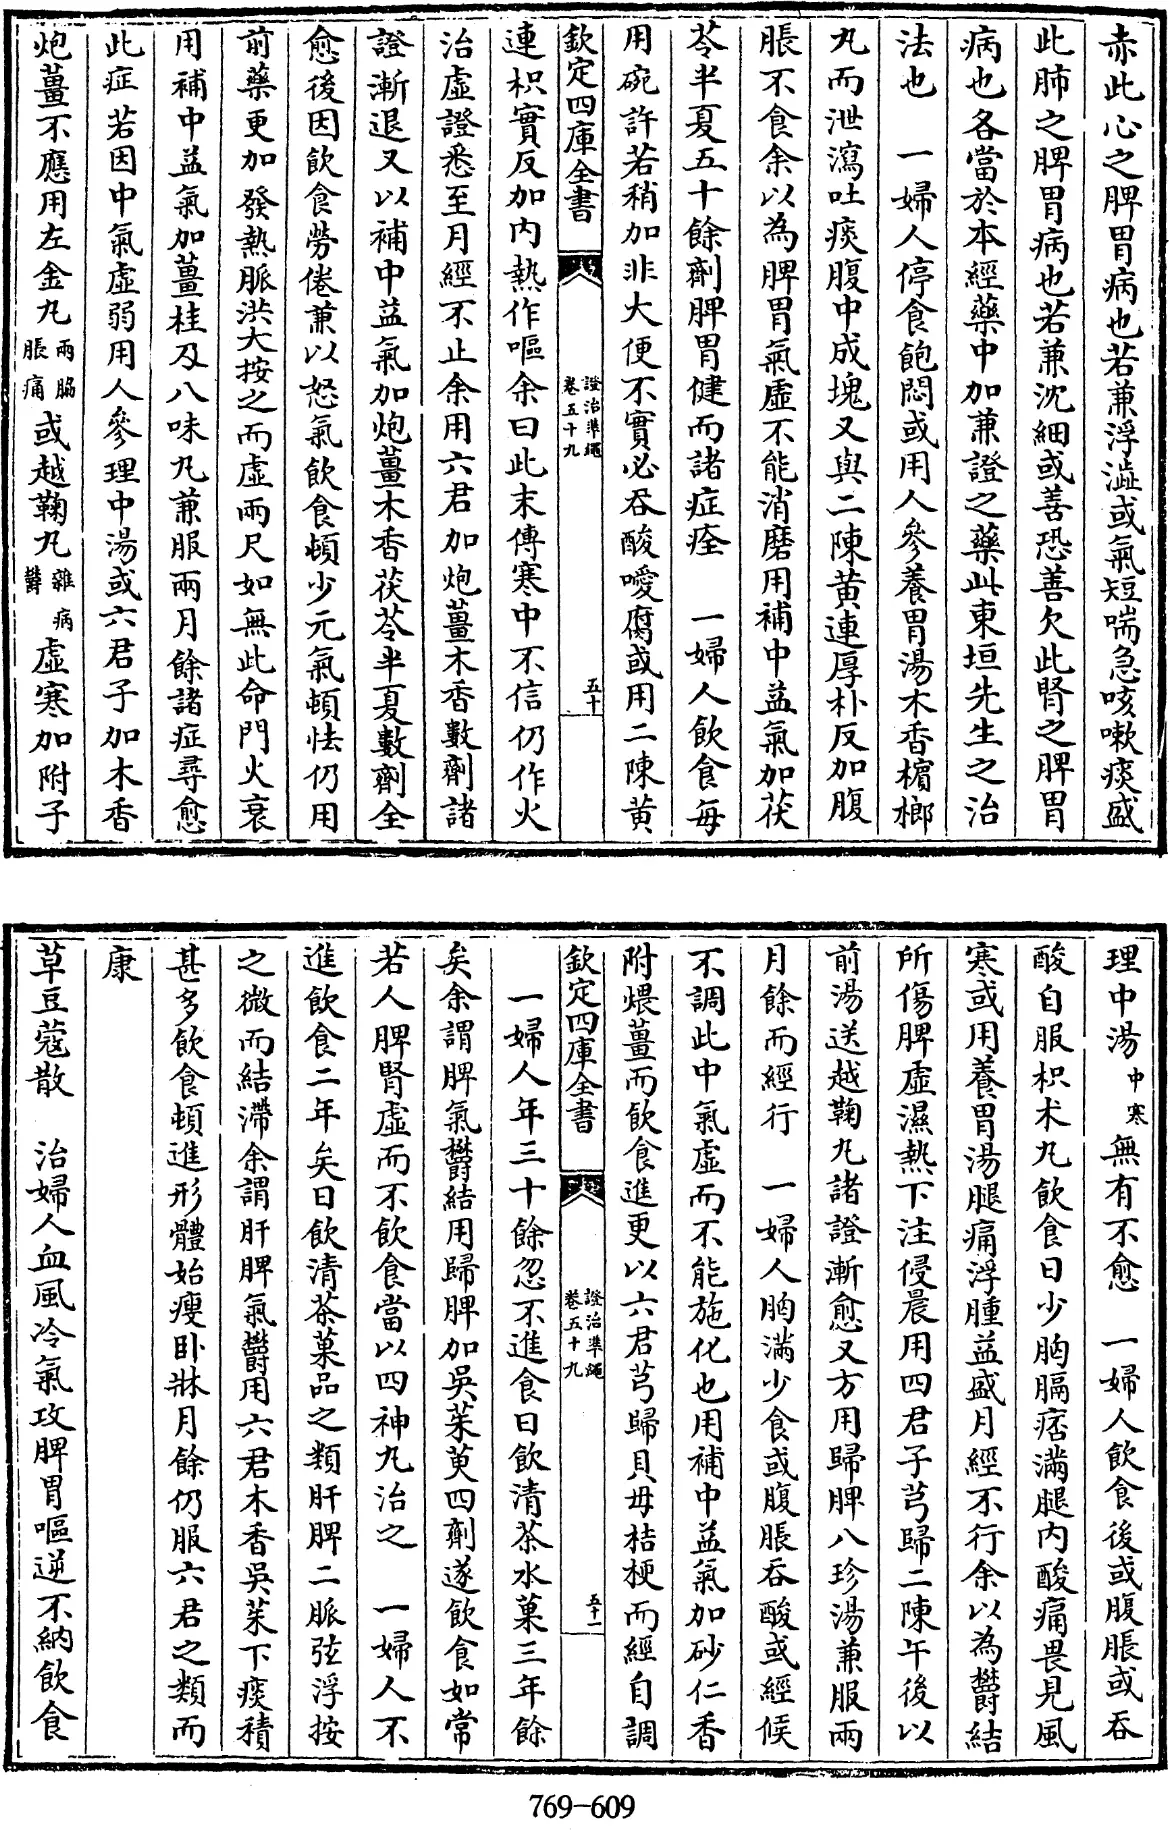 赤此心之脾胃病也若兼浮澁或氣短喘急咳嗽痰盛
此肺之脾胃病也若兼沈細或善恐善欠此腎之脾胃
病也各當於本經藥中加兼證之藥此東垣先生之治
法也　一婦人停食飽悶或用人參養胃湯木香檳榔
丸而泄瀉吐痰腹中成塊又與二陳黄連厚朴反加腹
脹不食余以為脾胃氣虛不能消磨用補中益氣加茯
苓半夏五十餘劑脾胃健而諸症痊　一婦人飲食每
用碗許若稍加非大便不實必吞酸噯腐或用二陳黄
欽定四庫全書
證治準繩
卷五十九
五十
連枳實反加内熱作嘔余曰此末傳寒中不信仍作火
治虛證悉至月經不止余用六君加炮薑木香數劑諸
證漸退又以補中益氣加炮薑木香茯苓半夏數劑全
愈後因飲食勞倦兼以怒氣飲食頓少元氣頓怯仍用
前藥更加發熱脈洪大按之而虛兩尺如無此命門火衰
用補中益氣加薑桂及八味丸兼服兩月餘諸症尋愈
此症若因中氣虛弱用人參理中湯或六君子加木香
炮薑不應用左金丸兩脇脹痛或越鞠丸雜病鬱虛寒加附子
理中湯中寒無有不愈　一婦人飲食後或腹脹或吞
酸自服枳术丸飲食日少胸膈痞滿腿内酸痛畏見風
寒或用養胃湯腿痛浮腫益盛月經不行余以為鬱結
所傷脾虛濕熱下注侵晨用四君子芎歸二陳午後以
前湯送越鞠丸諸證漸愈又方用歸脾八珍湯兼服兩
月餘而經行　一婦人胸滿少食或腹脹吞酸或經候
不調此中氣虛而不能施化也用補中益氣加砂仁香
附煨薑而飲食進更以六君芎歸貝母桔梗而經自調
欽定四庫全書
證治準繩
卷五十九
五十一
一婦人年三十餘忽不進食日飲清茶水菓三年餘
矣余謂脾氣鬱結用歸脾加吳茱萸四劑遂飲食如常
若人脾腎虛而不飲食當以四神丸治之　一婦人不
進飲食二年矣日飲清茶菓品之類肝脾二脈弦浮按
之微而結滯余謂肝脾氣鬱用六君木香吳茱下痰積
甚多飲食頓進形體始瘦卧牀月餘仍服六君之類而
康
草豆蔻散　治婦人血風冷氣攻脾胃嘔逆不納飲食
769-609